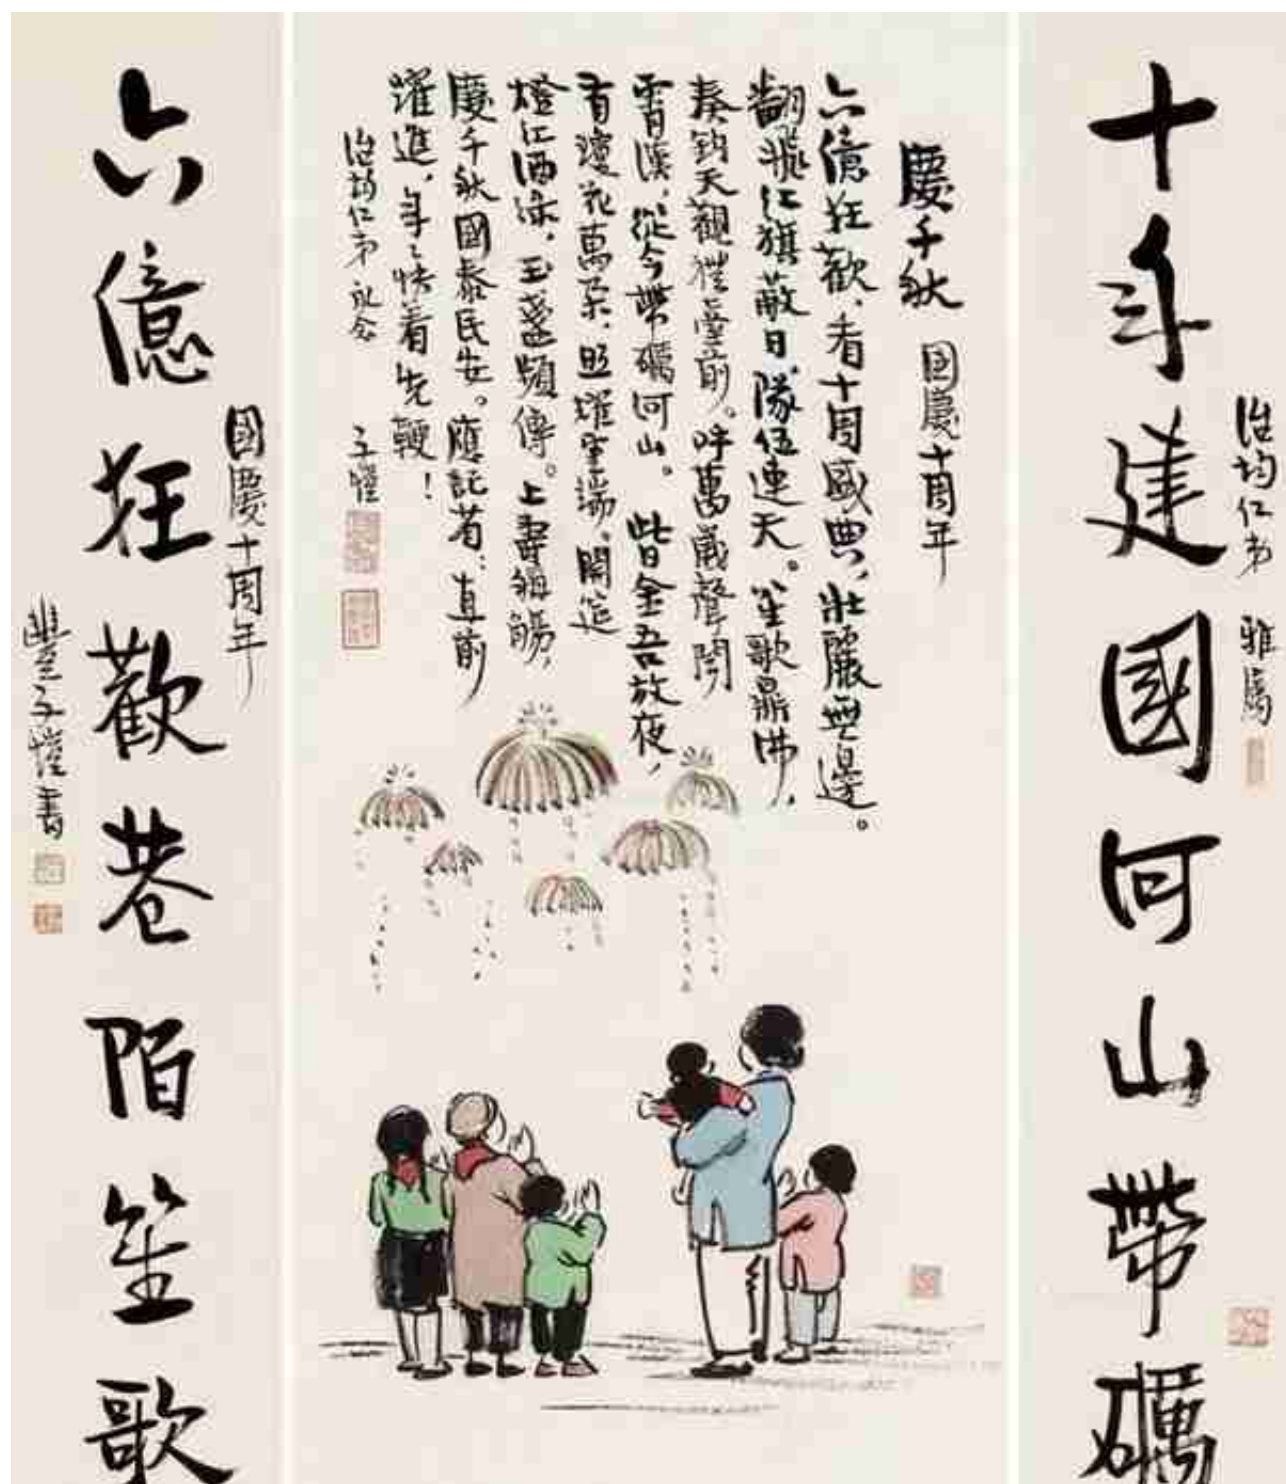 十年建國河山帶礪
治均仁弟 雅屬
慶千秋 国慶十周年
六億狂歡,看十周盛典,壯麗無邊。
翻飛红旗蔽日,隊伍連天。笙歌鼎沸,
奏鈞天觀禮臺前。呼萬歲聲聞
霄漢,從今帶礪河山。 皆金吾放夜,
有瓊花萬朵,照耀雲端。開筵
燈红酒綠,玉盞頻傳。上壽稱觴,
慶千秋國泰民安。應記省:直前
躍進,年々快着先鞭!
治均仁弟 永念 子愷
國慶十周年
六億狂歡巷陌笙歌
豐子愷書